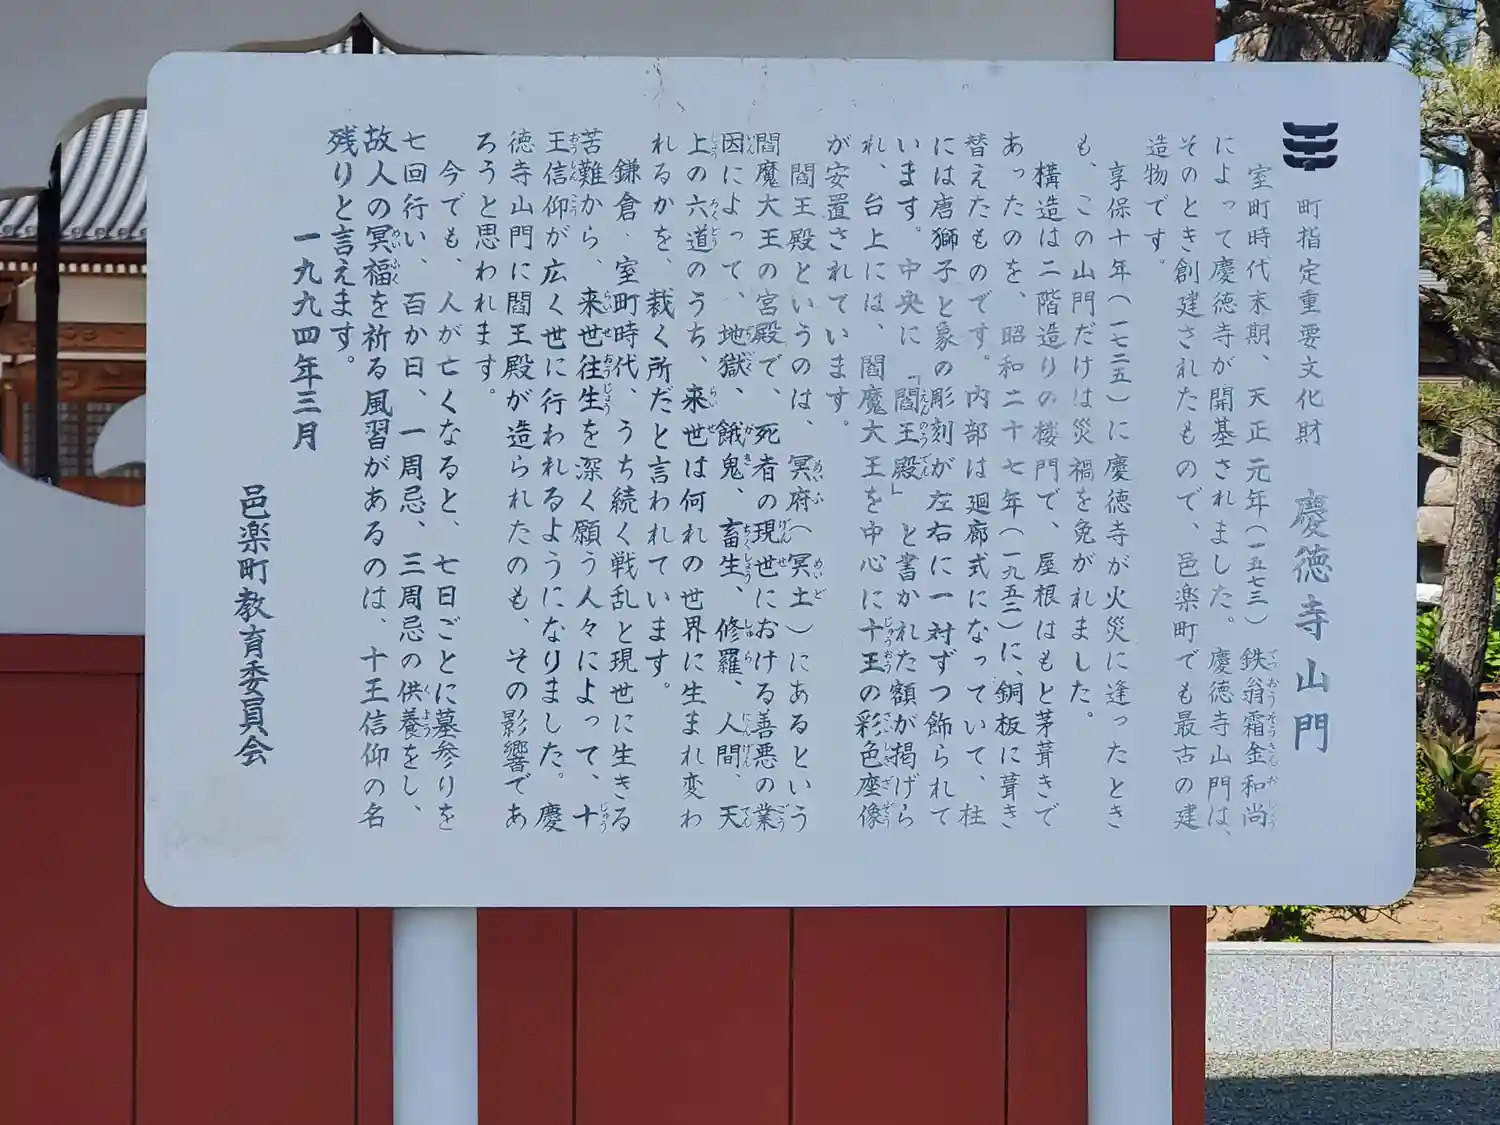 町指定重要文化財 慶徳寺山門
室町時代末期、天正元年(一五七三)鉄翁霜金和尚
によって慶徳寺が開基されました。慶徳寺山門は、
そのとき創建されたもので、邑楽町でも最古の建
造物です。
享保十年(一七二五)に慶徳寺が火災に逢ったとき
も、この山門だけは災禍を免がれました。
構造は二階造りの楼門で、屋根はもと茅葺きで
あったのを、昭和二十七年(一九五二)に、銅板に葺き
替えたものです。内部は廻廊式になっていて、柱
には唐獅子と象の彫刻が左右に一対ずつ飾られて
います。中央に「閻王殿」と書かれた額が掲げら
れ、台上には、閻魔大王を中心に十王の彩色座像
が安置されています。
閻王殿というのは、冥府(冥土)にあるという
閻魔大王の宮殿で、死者の現世における善悪の業
因によって、地獄、餓鬼、畜生、修羅、人間、天
上の六道のうち、来世は何れの世界に生まれ変わ
れるかを、裁く所だと言われています。
鎌倉・室町時代、うち続く戦乱と現世に生きる
苦難から、来世往生を深く願う人々によって、十
王信仰が広く世に行われるようになりました。慶
徳寺山門に閻王殿が造られたのも、その影響であ
ろうと思われます。
今でも、人が亡くなると、七日ごとに墓参りを
七回行い、百か日、一周忌、三周忌の供養をし、
故人の冥福を祈る風習があるのは、十王信仰の名
残りと言えます。
一九九四年三月
邑楽町教育委員会